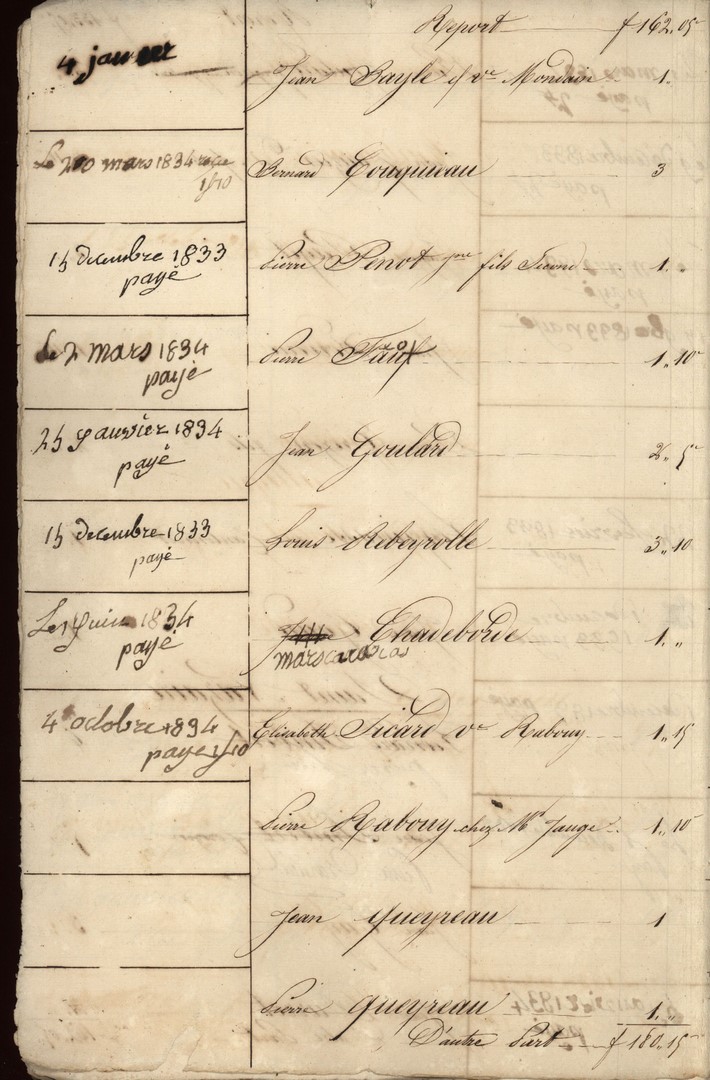 Report f 162.05
4 janvier
Jean Bayle f ve Mondain 1.
Le 20 mars 1834
1f10
Bernard 3
15 decembre 1833
payé
Pierre Penot fils Second 1.
Le 2 mars 1834
payé
Pierre Faux 1.. 10
25 Janvier 1834
payé
Jean Goulard 2.. 5
15 decembre 1833
payé
Louis Ribeyrolle 3.. 10
Le 1 Juin 1834
payé
Chadeborde 1. "
4 octobre 1834
paye 1f10
Elisabeth Sicard ve Rabouy 1.. 15
Pierre Rabouy chez Mr Jauge 1.. 10
Jean Queyreau 1
Pierre Queyreau 1. "
D'autre Part f 180.15